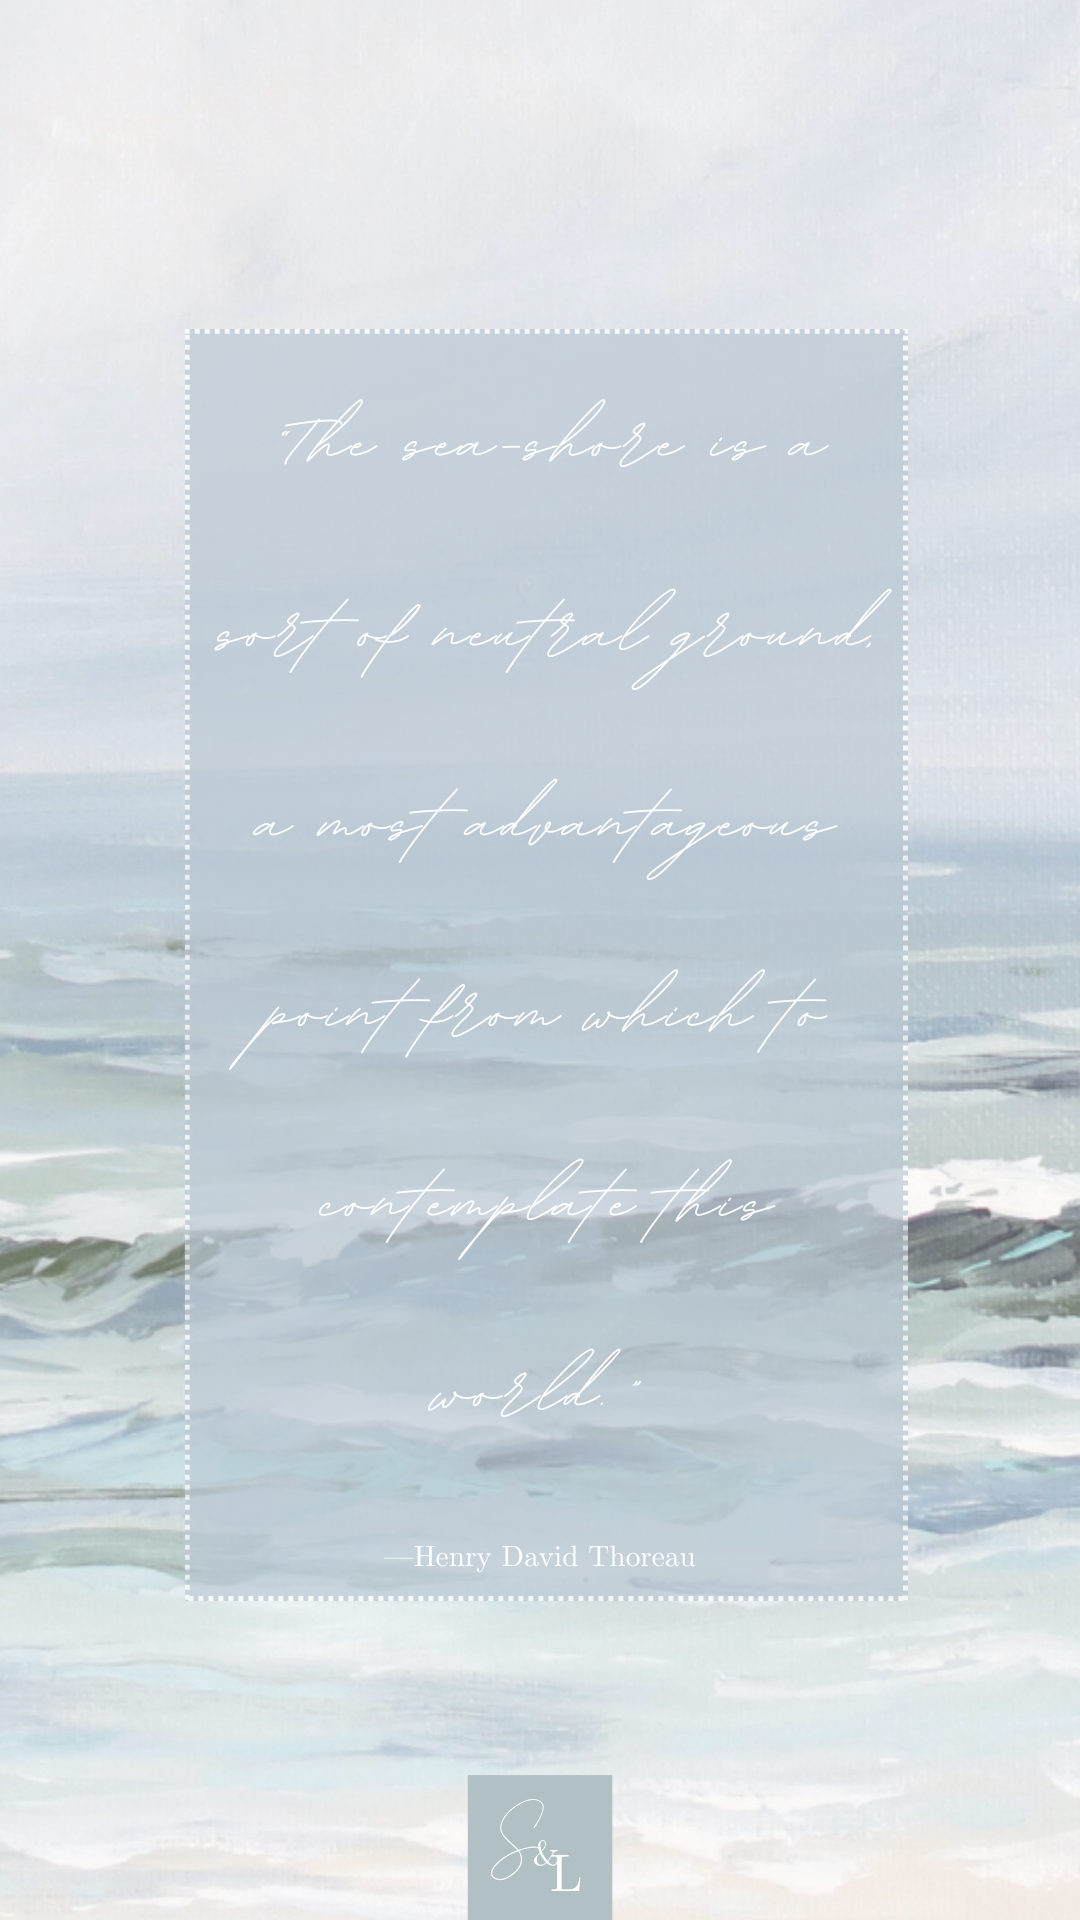 "The sea-shore is a
sort of neutral ground,
a most advantageous
point from which to
contemplate this
world."
—Henry David Thoreau
S&L